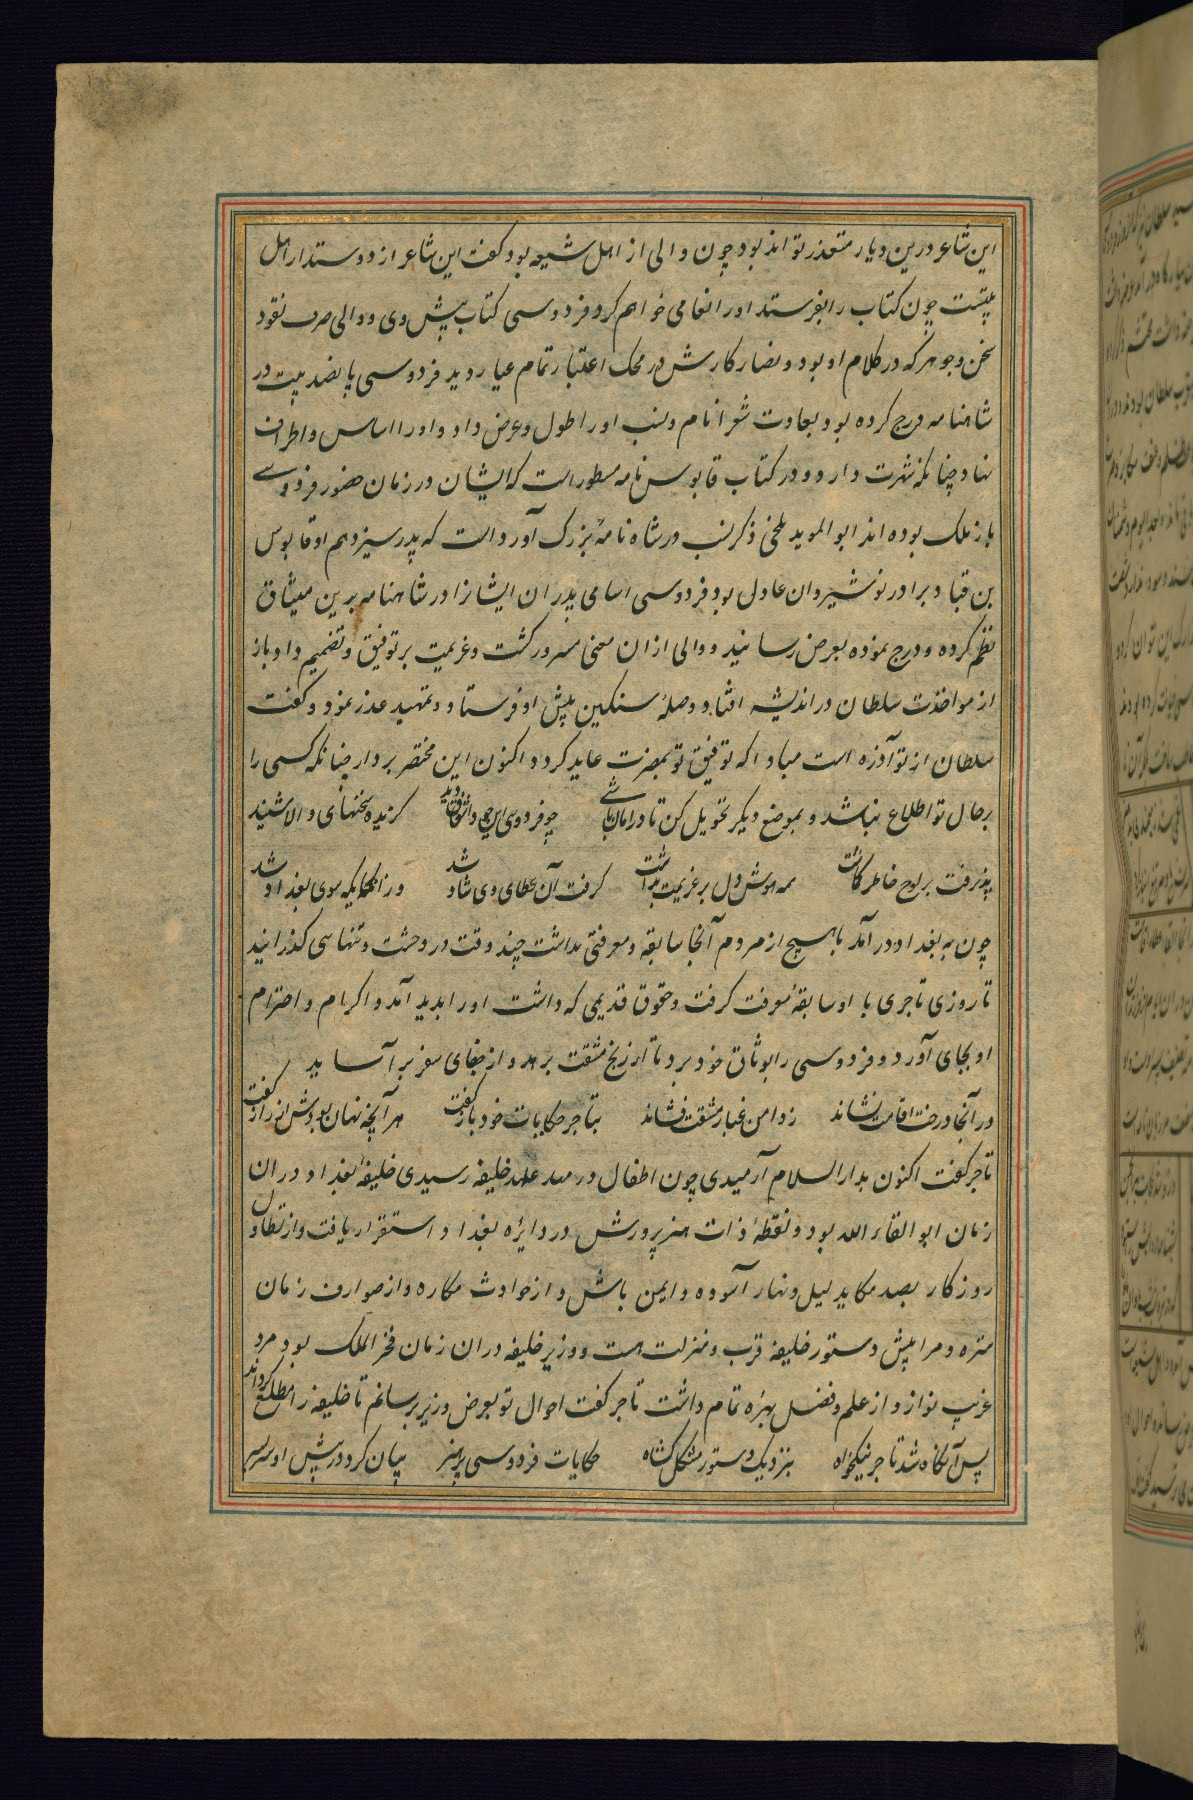 این شاعر درین دیار متعذر تواند بود چون والی از اهل شیعه بود گفت این شاعر از دوستدار اهل
بیتست چون کتاب را بفرستد او را انعامی خواهم کرد فردوسی کتاب پیش وی و والی صرف نقود
سخن و جوهر که در کلام او بود و نضار کارش در محک اعتبار تمام عیار دید فردوسی پانصد بیت در
شاهنامه درج کرده بود بعادت شعرا نام و نسب او را طول و عرض داد و او را اساس و اطراف
نهاد چنانکه شهرت دارد و در کتاب قابوس نامه مسطور است که ایشان در زمان حضور فردوسی
باز ملک بوده اند ابو الموید بلخی ذکر نسب در شاه نامهٔ بزرک آورد است که پدر سیزدهم او قابوس
بن قباد برادر نوشیروان عادل بود فردوسی اسامی پدران ایشانرا در شاهنامه برین میثاق
نظم کرده و درج نموده بعرض رسانید و والی ازان معنی مسرور گشت و عزیمت بر توفیق و تصمیم داد باز
از مواخذت سلطان در اندیشه افتاد و وصلهٔ سنکین پیش او فرستاد و تمهید عذر نمود و گفت
سلطان از تو آزرده است مبادا که توفیق تو بمضرت عاید کردد اکنون این مختصر بردار چنانکه کسی را
بر حال تو اطلاع نباشد و بموضع دیگر تحویل کن تا در امان باشی چو فردوسی این گزیده سخنهای والا شنید
پذیرفت بر لوح خاطر نگاشت همه هوش دل بر عزیمت بداشت گرفت آن عطای وی شاد شد وز انجایکه سوی بغداد شد
چون به بغداد در آمد با هیچ از مردم آنجا سابقه و معرفتی نداشت چند وقت در وحشت و تنهاسی گذرانید
تا روزی تاجری با او سابقهٔ معرفت گرفت و حقوق قدیمی که داشت او را بدید آمد و اکرام و احترام
او بجای آورد و فردوسی را بوثاق خود برد تا از رنج مشقت برهد و از جفای سفر بر آساید
در آنجا درخت اقامت نشاند ز دامن غبار مشقت فشاند بتاجر حکایات خود باز گفت هر آنچه نهان بودش از راز گفت
تاجر گفت اکنون بدار السلام آرمیدی چون اطفال در مهد عهد خلیفه رسیدی خلیفهٔ بغداد دران
زمان ابو القادر الله بود و نقطهٔ ذات هنر پرورش در دایره بغداد استقرار یافت و از تطاول
روزکار بصد مکاید لیل و نهار آسوده و ایمن باش و از حوادث مکاره و از صوارف زمان
منزه و مرا پیش دستور خلیفه قرب و منزلت هست و وزیر خلیفه دران زمان فخر الملک بود مرد
غریب نواز و از علم و فضل بهرهٔ تمام داشت تاجر گفت احوال تو بعرض وزیر برسانم تا خلیفه را مطلع گرداند
پس آنگاه شد تاجر نیکخواه بنزدیک دستور مشکل کشاه حکایات فردوسی پر هنر بیان کرد در پیش او سر بسر